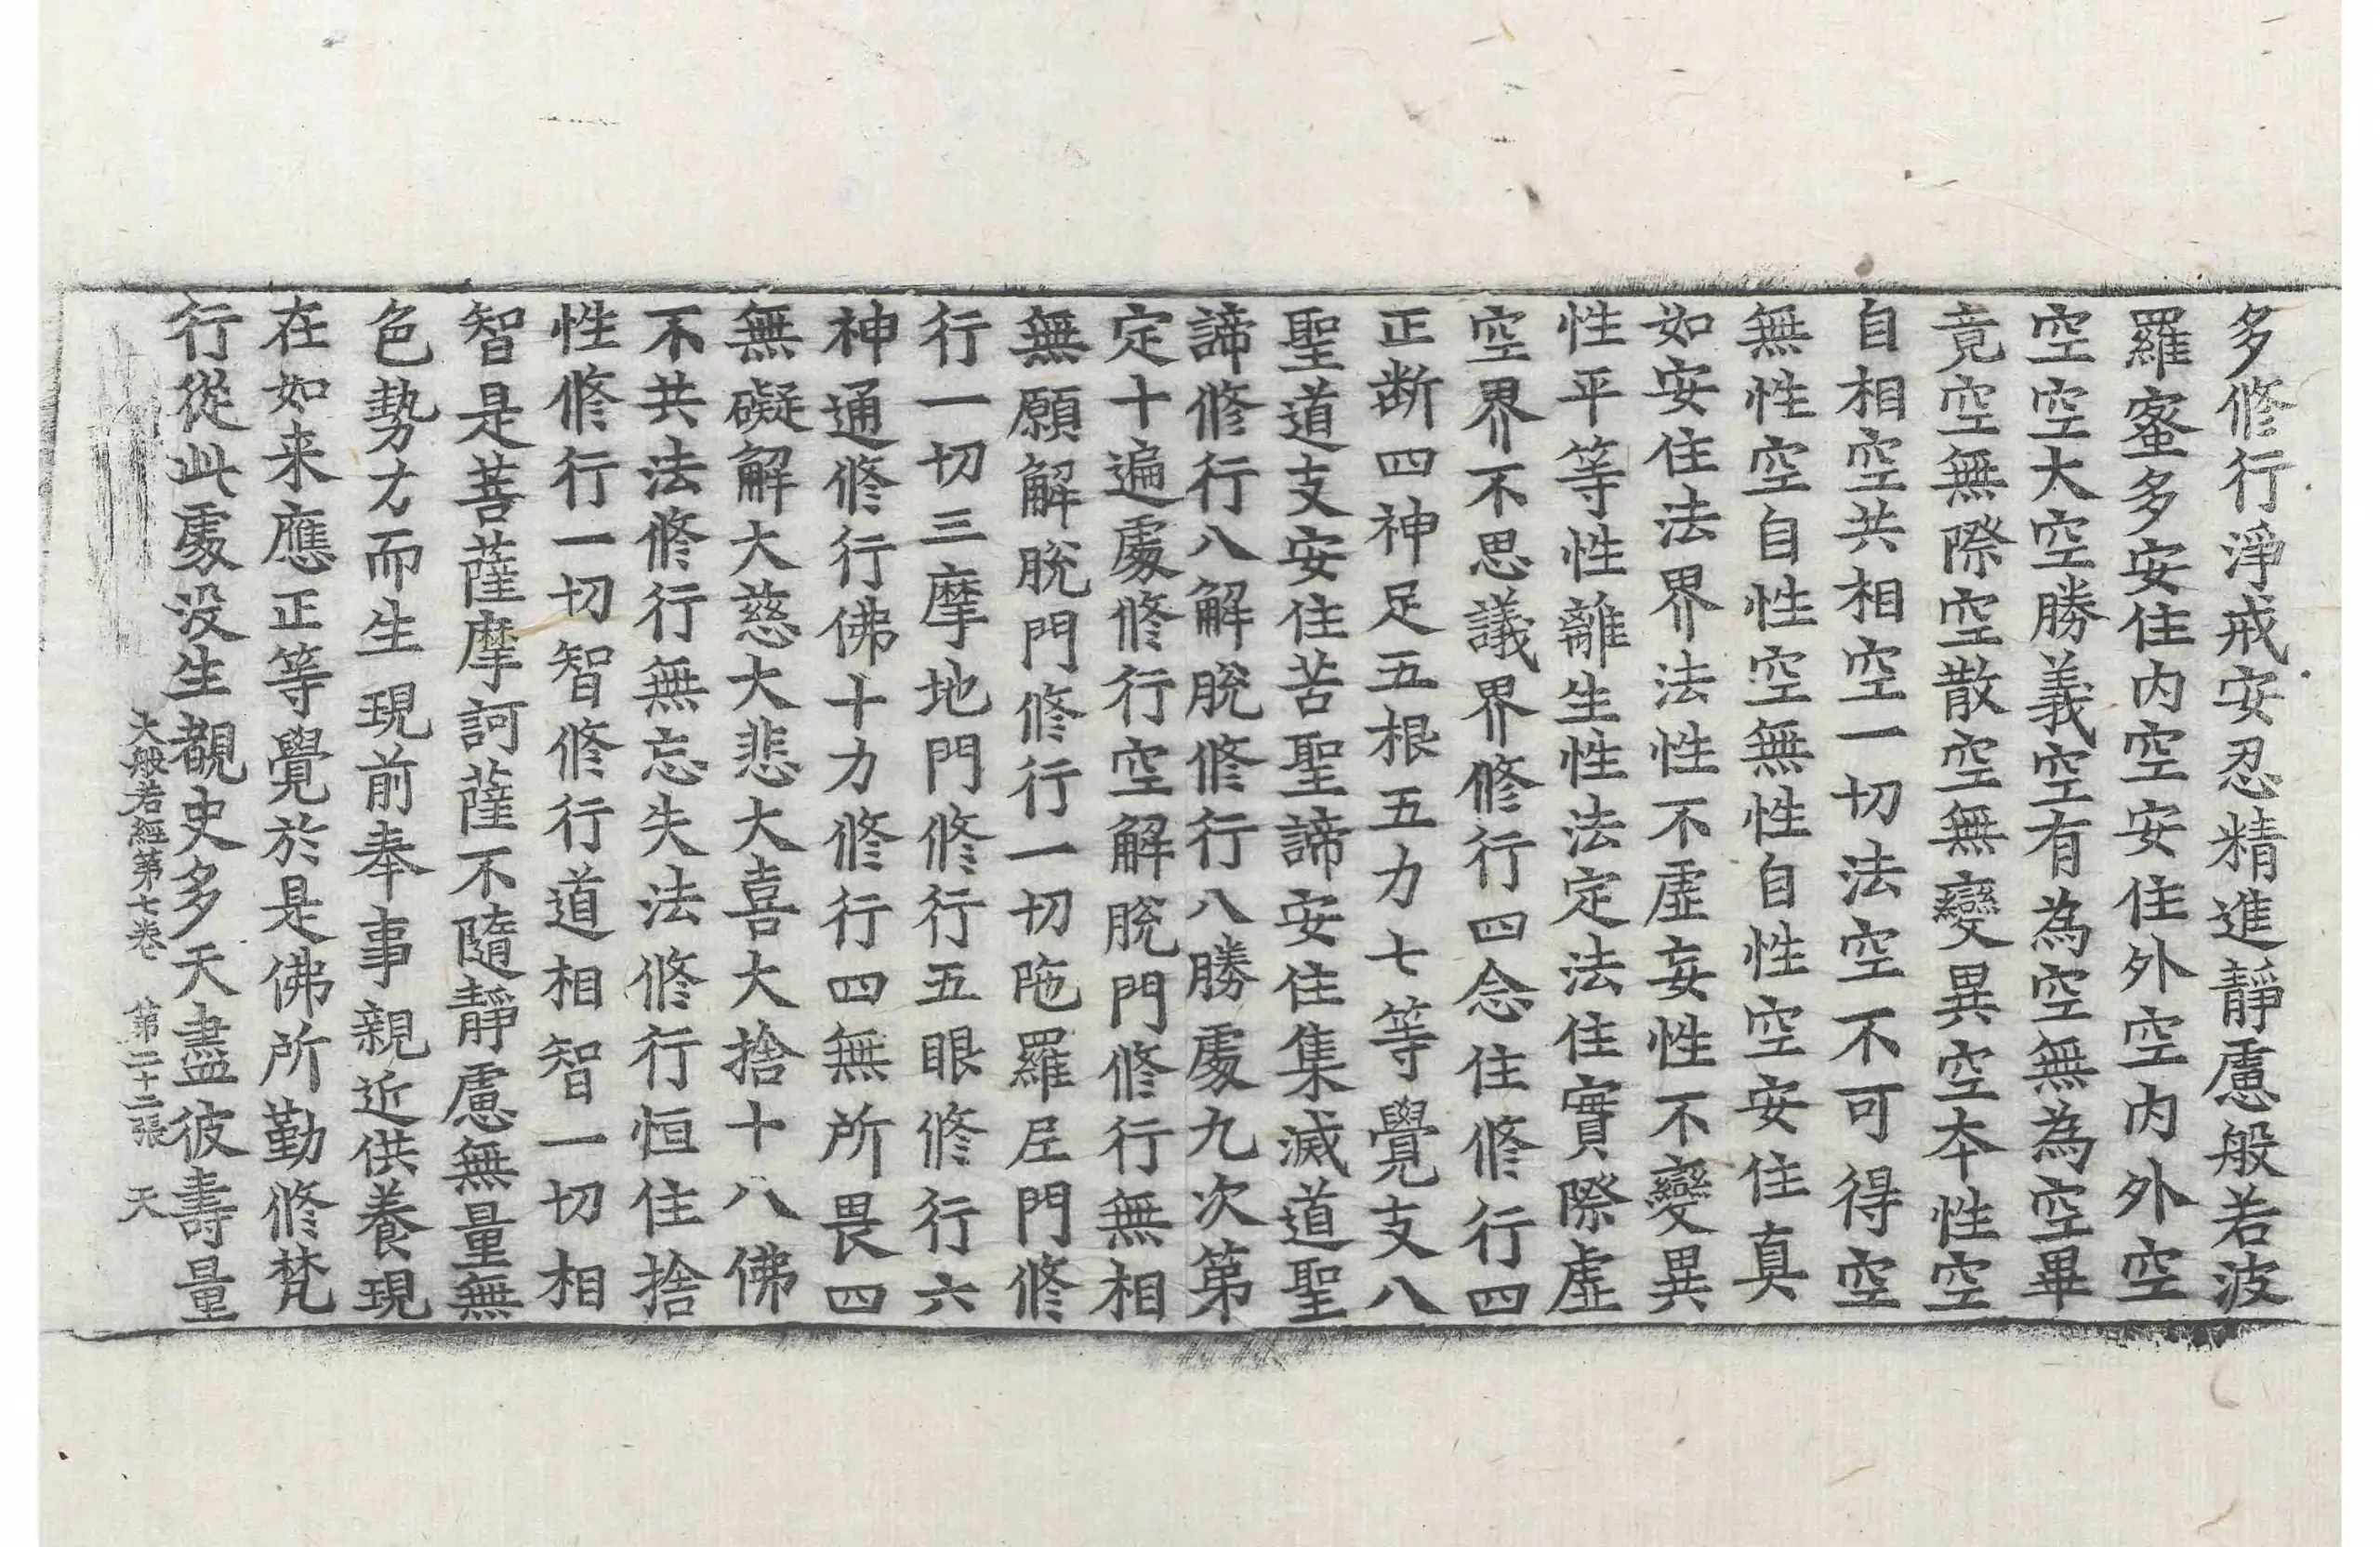 多修行淨戒安忍精進靜慮般若波
羅蜜多安住内空安住外空内外空
空空大空勝義空有為空無為空畢
竟空無際空散空無變異空本性空
自相空共相空一切法空不可得空
無性空自性空無性自性空安住真
如安住法界法性不虛妄性不變異
性平等性離生性法定法住實際虛
空界不思議界修行四念住修行四
正断四神足五根五力七等覺支八
聖道支安住苦聖諦安住集滅道聖
諦修行八解脫修行八勝處九次第
定十遍處修行空解脫門修行無相
無願解脫門修行一切陁羅尼門修
行一切三摩地門修行五眼修行六
神通修行佛十力修行四無所畏四
無礙解大慈大悲大喜大捨十八佛
不共法修行無忘失法修行恒住捨
性修行一切智修行道相智一切相
智是菩薩摩訶薩不隨靜慮無量無
色勢力而生現前奉事親近供養現
在如来應正等覺於是佛所勤修梵
行從此處没生覩史多天盡彼壽量
大般若經第七卷 第二十二張 天